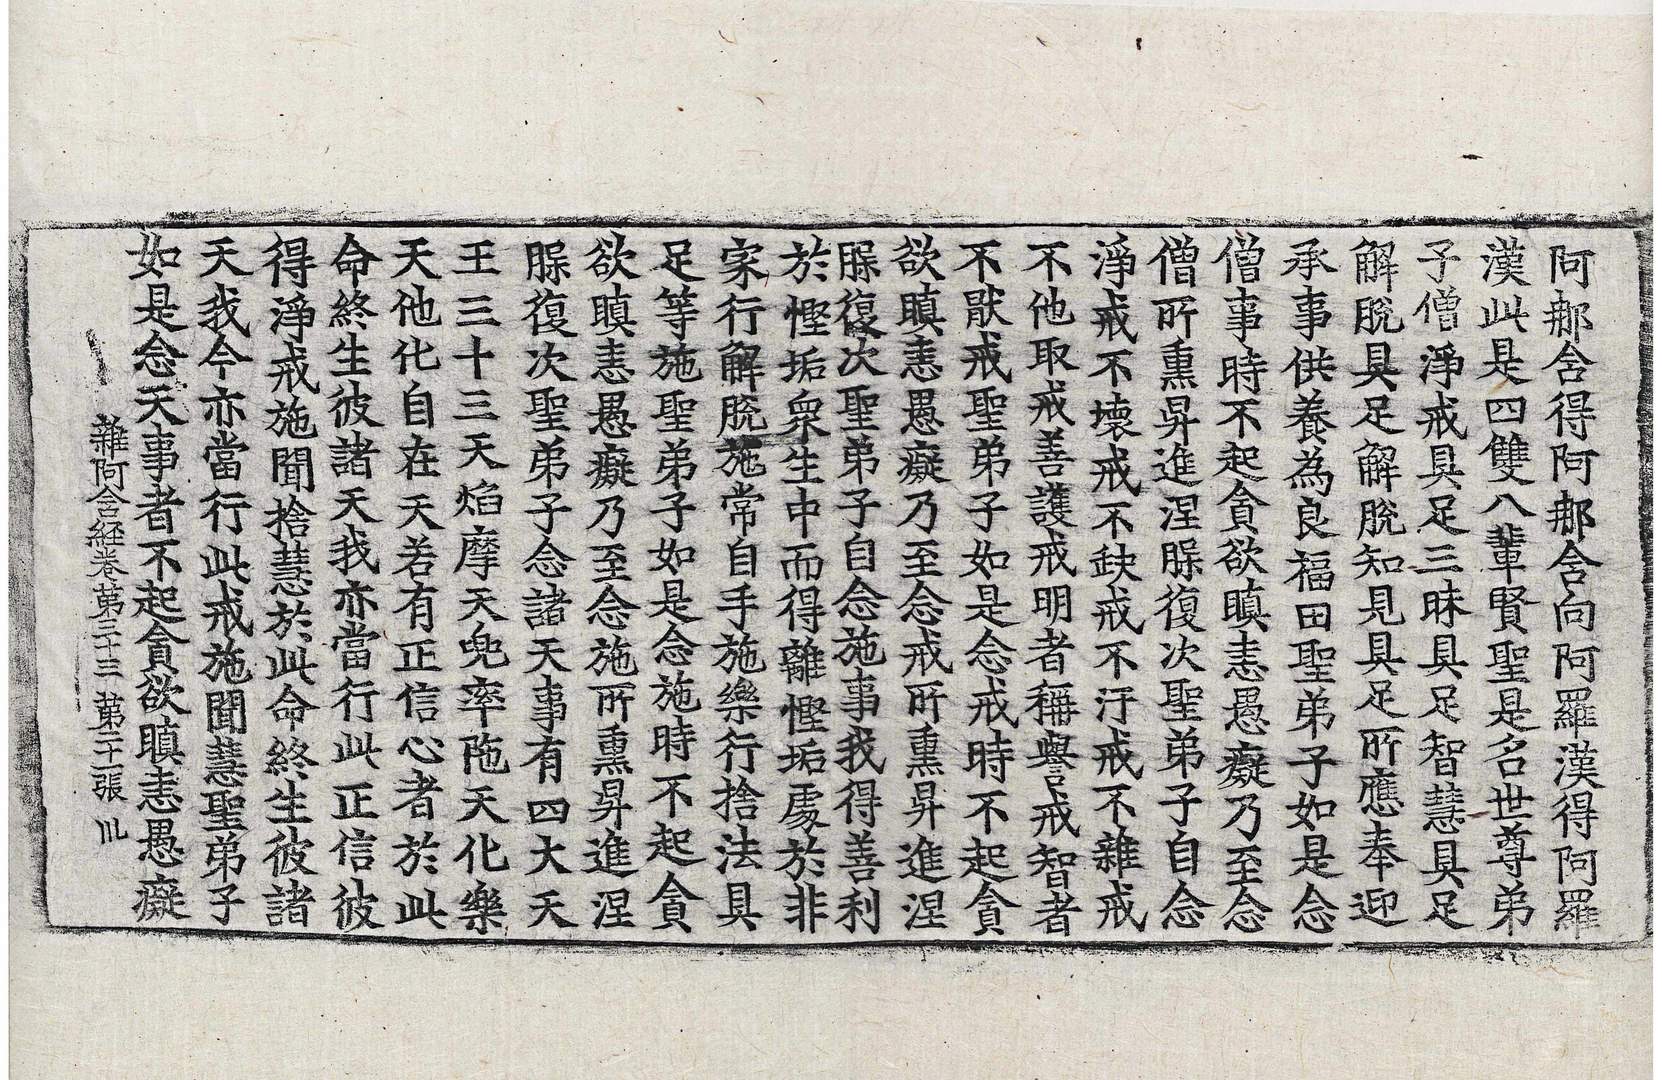 阿那舍得阿那舍向阿羅漢得阿羅
漢此是四雙八輩賢聖是名世尊弟
子僧淨戒具足三昧具足智慧具足
解脫具足解脫知見具足所應奉迎
承事供養為良福田聖弟子如是念
僧事時不起貪欲瞋恚愚癡乃至念
僧所熏昇進涅槃復次聖弟子自念
淨戒不壞戒不缺戒不汙戒不雜戒
不他取戒善護戒明者稱譽戒智者
不猒戒聖弟子如是念戒時不起貪
欲瞋恚愚癡乃至念戒所熏昇進涅
槃復次聖弟子自念施事我得善利
於慳垢衆生中而得離慳垢處於非
家行解脫施常自手施樂行捨法具
足等施聖弟子如是念施時不起貪
欲瞋恚愚癡乃至念施所熏昇進涅
槃復次聖弟子念諸天事有四大天
王三十三天焰摩天兜率陁天化樂
天他化自在天若有正信心者於此
命終生彼諸天我亦當行此正信彼
得淨戒施聞捨慧於此命終生彼諸
天我今亦當行此戒施聞慧聖弟子
如是念天事者不起貪欲瞋恚愚癡
雜阿含経卷第三十三 第二十一張 𠛬